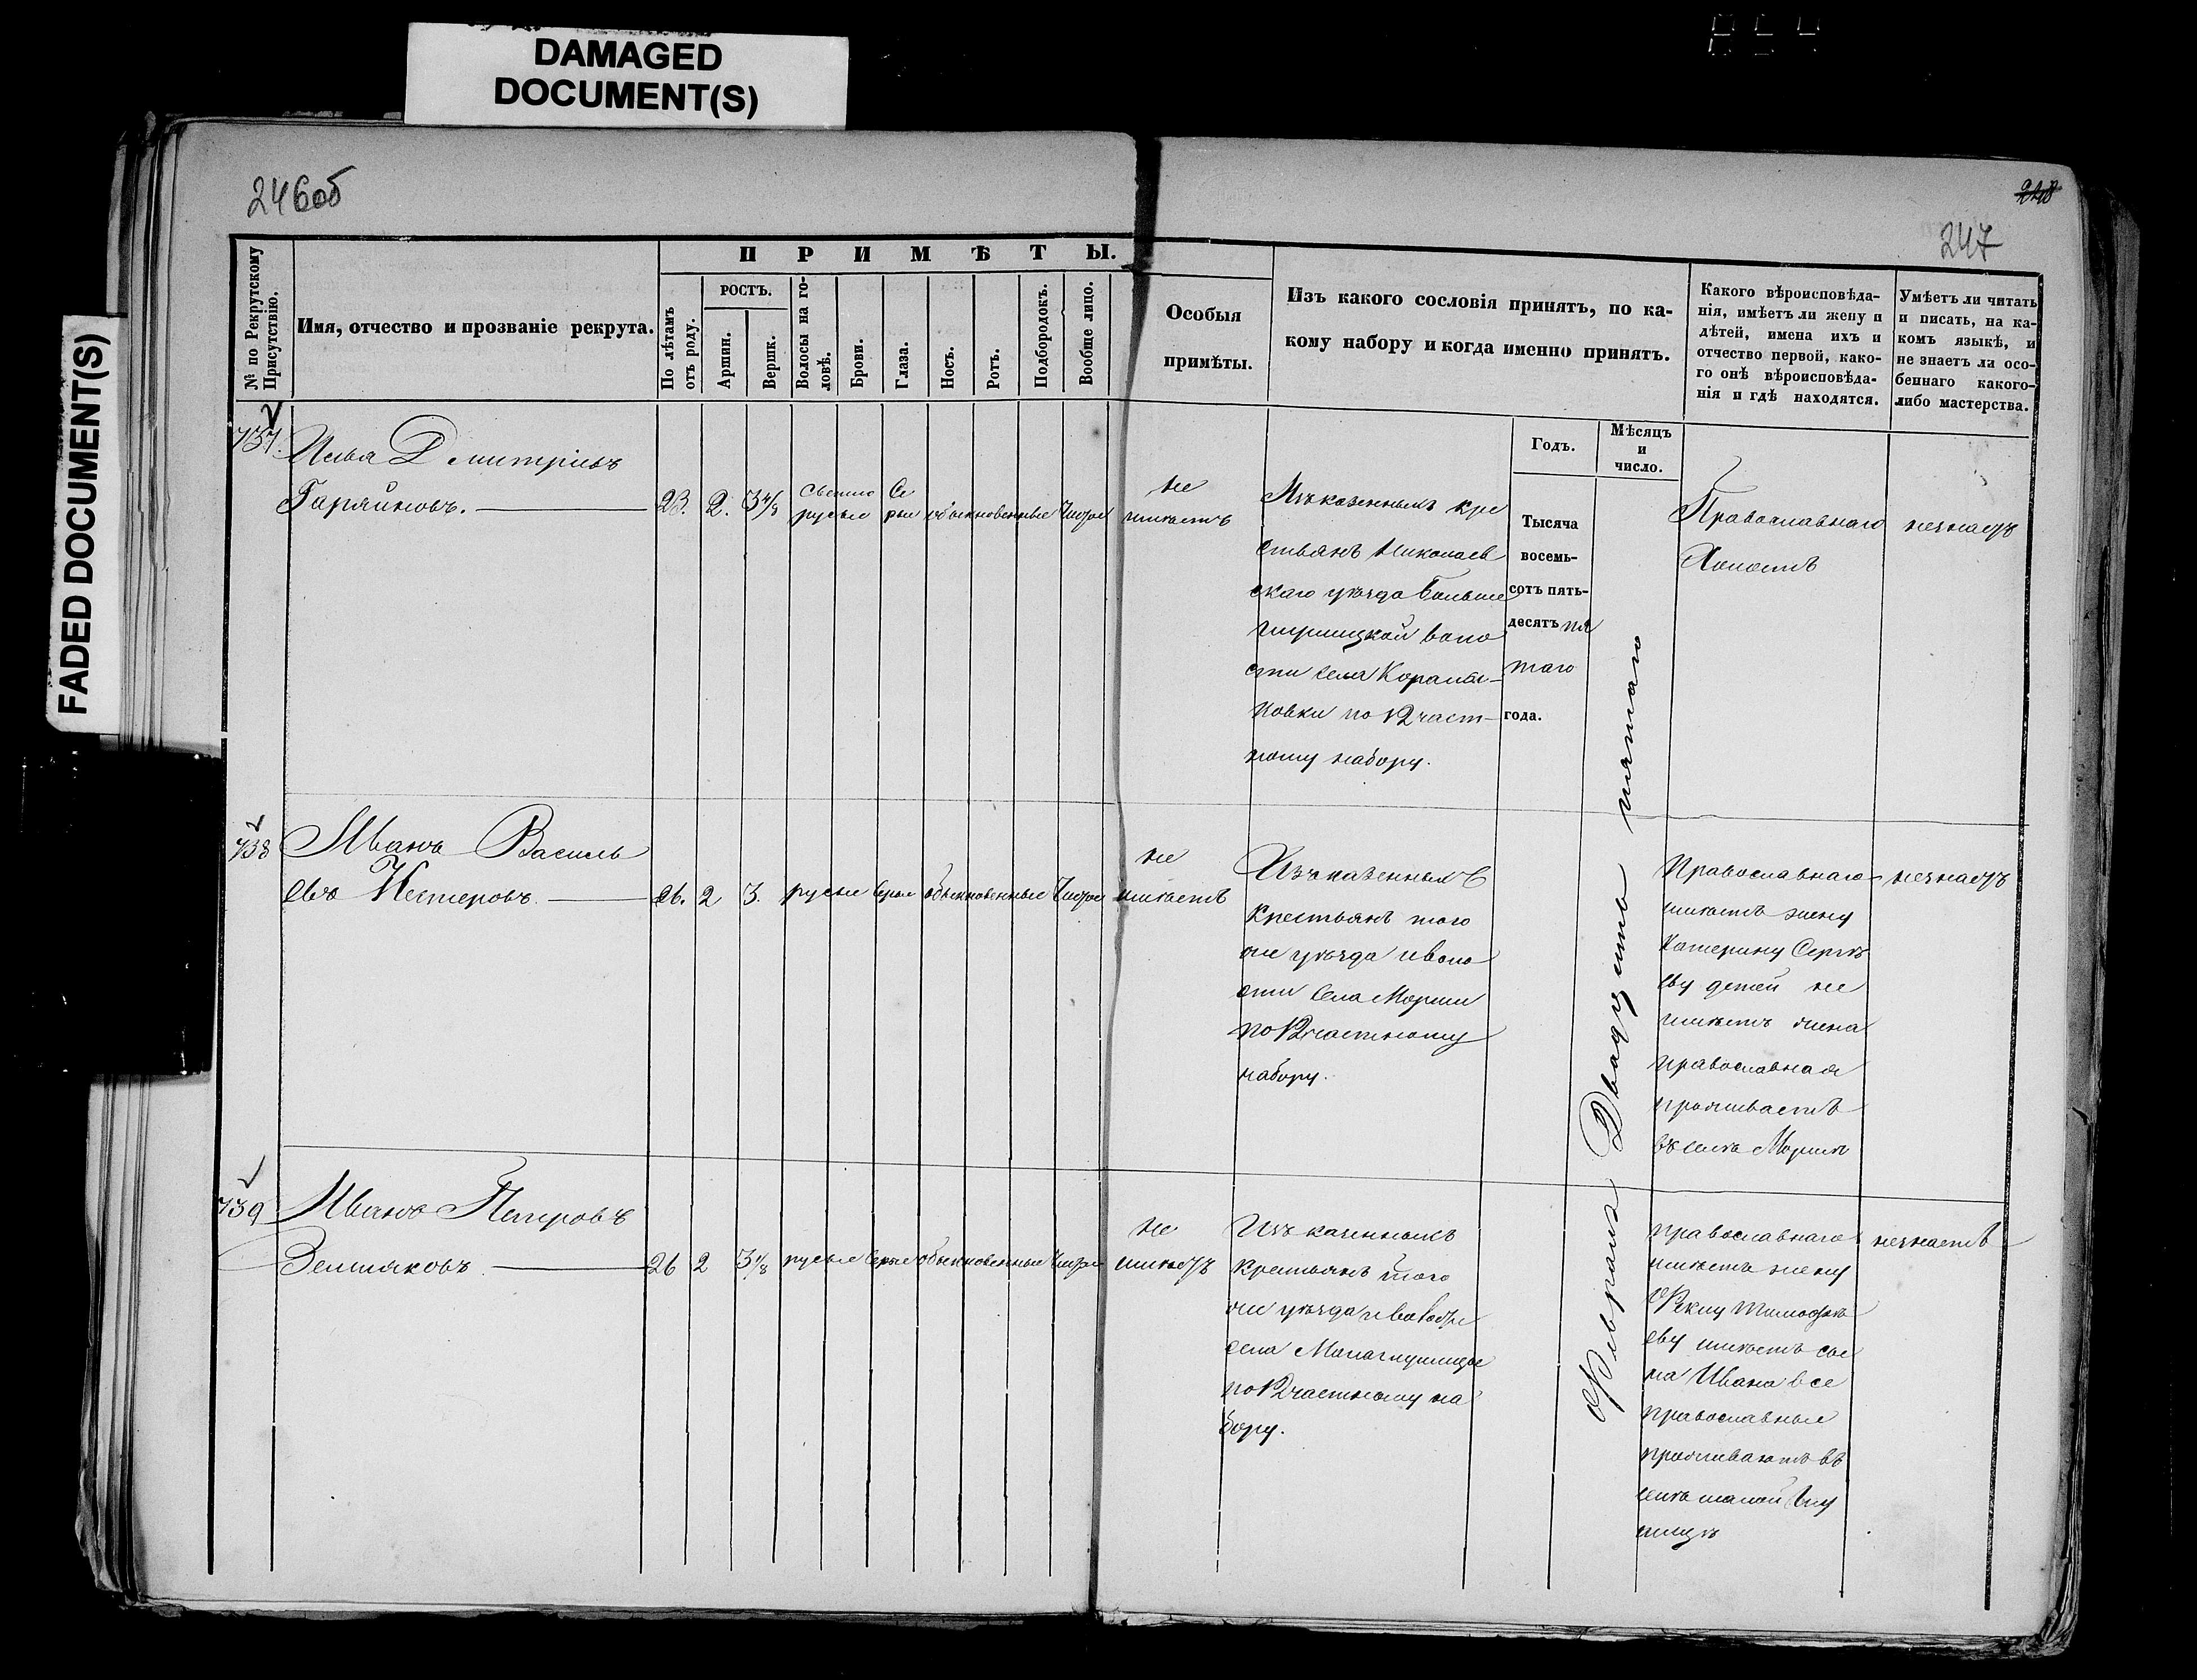 DAMAGED
DOCUMENT(S)
FADED DOCUMENT(S)
246об
248
247
№ по Рекрутскому
Присутствію.
Имя, отчество и прозваніе рекрута.
ПРИМѢТЫ.
По лѣтамъ
отъ роду.
РОСТЪ.
Аршин.
Вершк.
Волосы на го-
ловѣ.
Брови.
Глаза.
Носъ.
Ротъ.
Подбородокъ.
Вообще лицо.
Особыя
примѣты.
Изъ какого сословія принятъ, по ка-
кому набору и когда именно принятъ.
Годъ.
Мѣсяцъ
и
число.
Какого вѣроисповѣда-
нія, имѣетъ ли жену и
дѣтей, имена ихъ и
отчество первой, како-
го онѣ вѣроисповѣда-
нія и гдѣ находятся.
Умѣетъ ли читать
и писать, на ка-
комъ языкѣ, и
не знаетъ ли осо-
беннаго какого-
либо мастерства.
737.
Илья Дмитріевъ
Гаряйновъ.
23. 2. 3 4/8
Светло
русые
Се
рые
обыкновенные
Чистое
не
имѣетъ
Изъ казенныхъ кре
стьянъ Николаев
скаго уѣзда Больше
глушицкой воло
сти села
новки по 12 част-
ному набору.
Тысяча
восемь-
сотъ пять-
десятъ пя
таго
года.
Февраля Двадцать пятаго
Православнаго
Холостъ
незнаетъ
738
Иванъ Василь
евъ Нестеровъ.
26. 2 3.
русые серые обыкновенные Чистое
не
имѣетъ
Изъ казенныхъ
Крестьянъ того
же уѣзда и воло
сти села Морши
по 12 частному
набору.
Православнаго
имѣетъ жену
Катерину Сергѣ
еву детей не
имѣетъ жена
православная
проживаетъ
въ селѣ Моршѣ
незнаетъ
739
Иванъ Петровъ
Земляковъ.
26 2 3 1/8
русые серые обыкновенные Чистое
не
имѣетъ
Изъ казенныхъ
Крестьянъ того
же уѣзда и волости
села Малаглушицы
по 12 частному на
бору.
православнаго
имѣетъ жену
Феклу Тимофѣ
еву имѣетъ сы
на Ивана все
православные
проживаютъ въ
селѣ малой Глу
шицѣ
незнаетъ